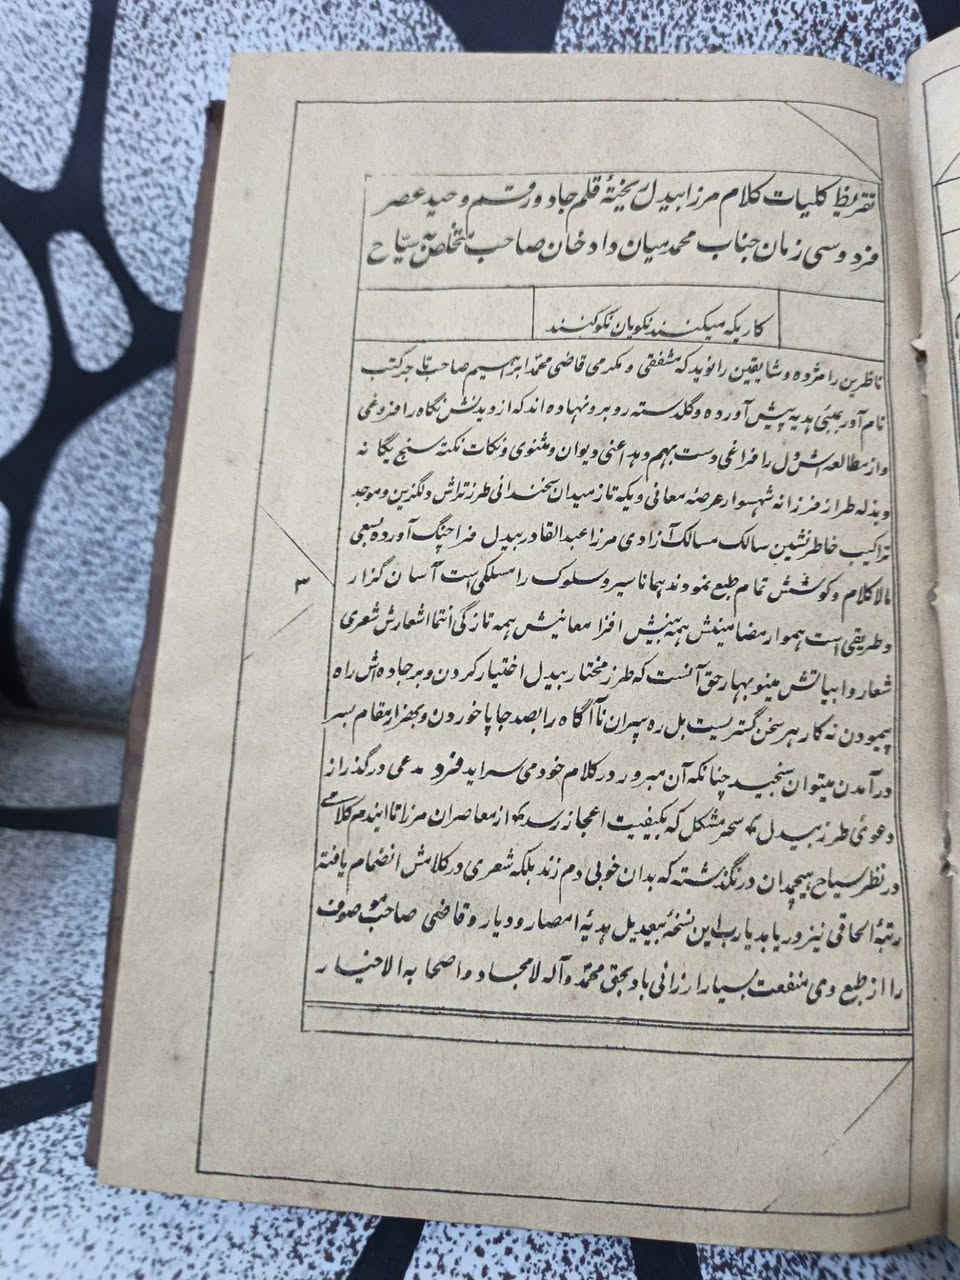 تقریظ کلیات کلام مرزا بیدل ریختهٔ قلم جادو رقم وحید عصر
فردوسی زمان جناب محمد میان داد خان صاحب متخلص به سیّاح
کاریکه میکنند نکویان نکو کنند
ناظرین را مژده و شایقین را نوید که مشفقی و مکرمی قاضی محمد ابراهیم صاحب تاجر کتب
نام آور بمبئی هدیه پیش آورده و گلدسته روبرو نهاده اند که از دیدنش نگاه را فروغی
و از مطالعه اش دل را فراغی دست بهم دهد اعنی دیوان و مثنوی و نکات نکته سنج یگانه
و بذله طراز فرزانه شهسوار عرصهٔ معانی و یکه تاز میدان سخندانی طرز تراش دلگزین و موجد
تراکیب خاطرنشین سالک مسالک آزادی مرزا عبدالقادر بیدل فراچنگ آورده بسعی
مالاکلام و کوشش تمام طبع نمودند همانا سیر و سلوک را مسلکی است آسان گزار
و طریقی است هموار مضامینش همه بینش افزا معانیش همه تازگی انتما اشعارش شعری
شعار و ابیاتش مینو بهار حق آنست که طرز مختار بیدل اختیار کردن و بر جاده اش راه
پیمودن نه کار هر سخن گستریست بل ره سپران ناآگاه را بصد جا پا خوردن و بهزار مقام بسر
در آمدن میتوان سنجید چنانکه آن مبرور در کلام خود می سراید فرد مدعی در گذر از
دعوئ طرز بیدل ٭ سحر مشکل که بکیفیت اعجاز رسد ٭ از معاصران مرزا تا ایندم کلامی
در نظر سیاح هیچمدان در نگذشته که بدان خوبی دم زند بلکه شعری در کلامش انضمام یافته
رتبهٔ الحاقی نیز دریابد یارب این نسخهٔ بیعدیل هدیهٔ امصار و دیار و قاضی صاحب موصوف
را از طبع وی منفعت بسیار ارزانی باد بحق محمد و آله لامجاد و اصحابه الاخیار
۳